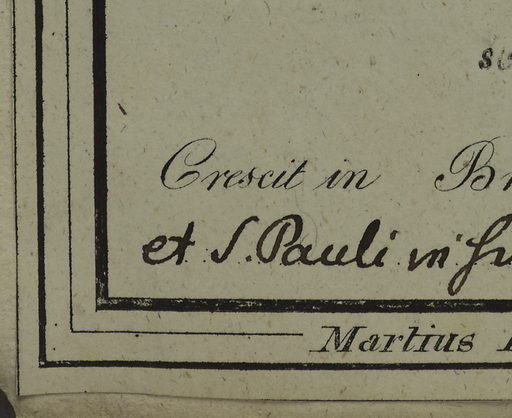 Crescit in Br
et S. Pauli in
Martius